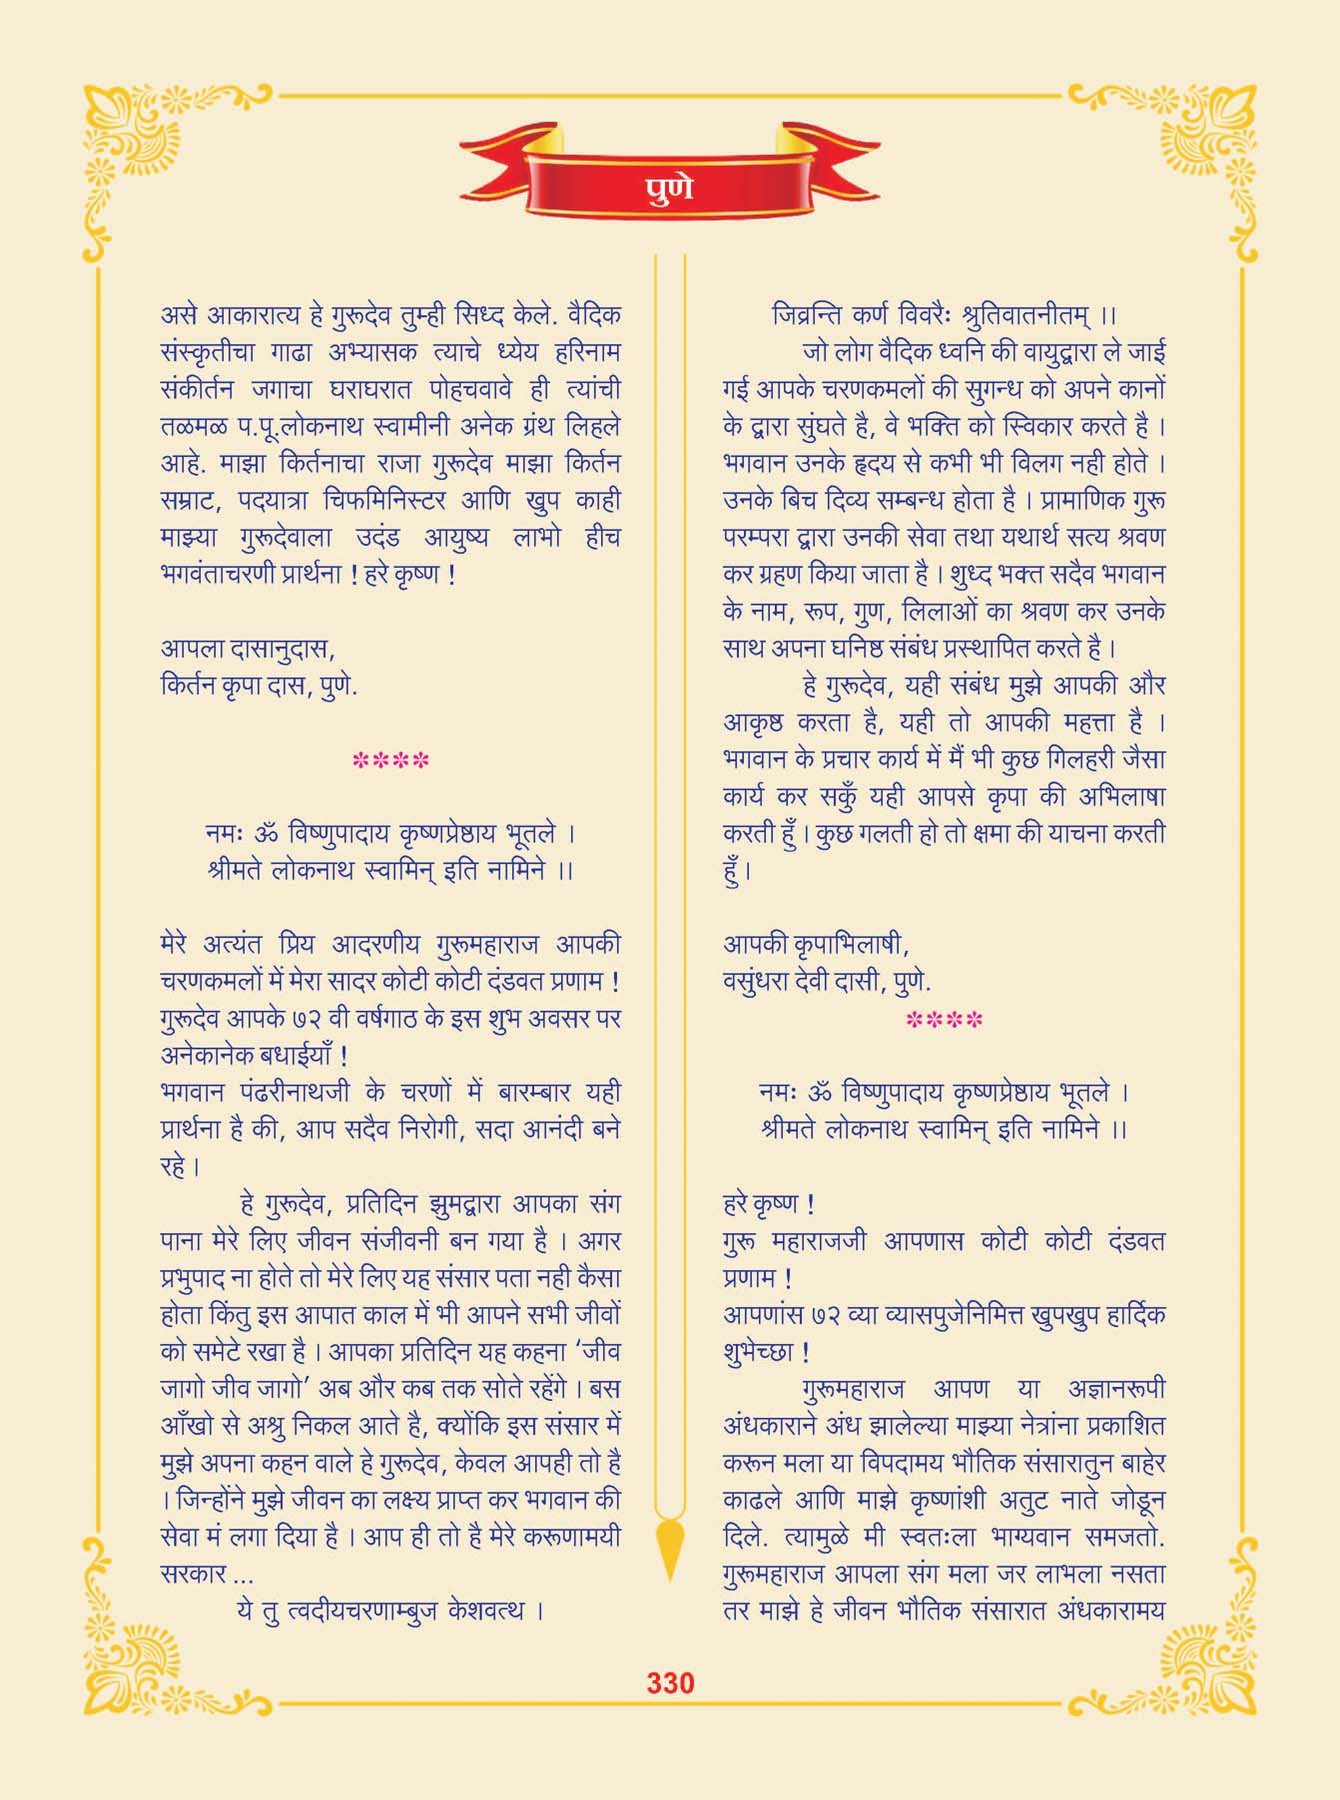 पुणे
असे आकारात्य हे गुरूदेव तुम्ही सिध्द केले. वैदिक
संस्कृतीचा गाढा अभ्यासक त्याचे ध्येय हरिनाम
संकीर्तन जगाचा घराघरात पोहचवावे ही त्यांची
तळमळ प.पू.लोकनाथ स्वामीनी अनेक ग्रंथ लिहले
आहे. माझा किर्तनाचा राजा गुरूदेव माझा किर्तन
सम्राट, पदयात्रा चिफमिनिस्टर आणि खुप काही
माझ्या गुरूदेवाला उदंड आयुष्य लाभो हीच
भगवंताचरणी प्रार्थना ! हरे कृष्ण !
आपला दासानुदास,
किर्तन कृपा दास, पुणे.
****
नमः ॐ विष्णुपादाय कृष्णप्रेष्ठाय भूतले ।
श्रीमते लोकनाथ स्वामिन् इति नामिने ।।
मेरे अत्यंत प्रिय आदरणीय गुरूमहाराज आपकी
चरणकमलों में मेरा सादर कोटी कोटी दंडवत प्रणाम !
गुरूदेव आपके ७२ वी वर्षगाठ के इस शुभ अवसर पर
अनेकानेक बधाईयाँ !
भगवान पंढरीनाथजी के चरणों में बारम्बार यही
प्रार्थना है की, आप सदैव निरोगी, सदा आनंदी बने
रहे ।
हे गुरूदेव, प्रतिदिन झुमद्वारा आपका संग
पाना मेरे लिए जीवन संजीवनी बन गया है । अगर
प्रभुपाद ना होते तो मेरे लिए यह संसार पता नही कैसा
होता किंतु इस आपात काल में भी आपने सभी जीवों
को समेटे रखा है । आपका प्रतिदिन यह कहना ‘जीव
जागो जीव जागो’ अब और कब तक सोते रहेंगे । बस
आँखो से अश्रु निकल आते है, क्योंकि इस संसार में
मुझे अपना कहन वाले हे गुरूदेव, केवल आपही तो है
। जिन्होंने मुझे जीवन का लक्ष्य प्राप्त कर भगवान की
सेवा मं लगा दिया है । आप ही तो है मेरे करूणामयी
सरकार ...
ये तु त्वदीयचरणाम्बुज केशवत्थ ।
जिव्रन्ति कर्ण विवरैः श्रुतिवातनीतम् ।।
जो लोग वैदिक ध्वनि की वायुद्वारा ले जाई
गई आपके चरणकमलों की सुगन्ध को अपने कानों
के द्वारा सुंघते है, वे भक्ति को स्विकार करते है ।
भगवान उनके हृदय से कभी भी विलग नही होते ।
उनके बिच दिव्य सम्बन्ध होता है । प्रामाणिक गुरू
परम्परा द्वारा उनकी सेवा तथा यथार्थ सत्य श्रवण
कर ग्रहण किया जाता है । शुध्द भक्त सदैव भगवान
के नाम, रूप, गुण, लिलाओं का श्रवण कर उनके
साथ अपना घनिष्ठ संबंध प्रस्थापित करते है ।
हे गुरूदेव, यही संबंध मुझे आपकी और
आकृष्ठ करता है, यही तो आपकी महत्ता है ।
भगवान के प्रचार कार्य में मैं भी कुछ गिलहरी जैसा
कार्य कर सकुँ यही आपसे कृपा की अभिलाषा
करती हुँ । कुछ गलती हो तो क्षमा की याचना करती
हुँ ।
आपकी कृपाभिलाषी,
वसुंधरा देवी दासी, पुणे.
****
नमः ॐ विष्णुपादाय कृष्णप्रेष्ठाय भूतले ।
श्रीमते लोकनाथ स्वामिन् इति नामिने ।।
हरे कृष्ण !
गुरू महाराजजी आपणास कोटी कोटी दंडवत
प्रणाम !
आपणांस ७२ व्या व्यासपुजेनिमित्त खुपखुप हार्दिक
शुभेच्छा !
गुरूमहाराज आपण या अज्ञानरूपी
अंधकाराने अंध झालेल्या माझ्या नेत्रांना प्रकाशित
करून मला या विपदामय भौतिक संसारातुन बाहेर
काढले आणि माझे कृष्णांशी अतुट नाते जोडून
दिले. त्यामुळे मी स्वतःला भाग्यवान समजतो.
गुरूमहाराज आपला संग मला जर लाभला नसता
तर माझे हे जीवन भौतिक संसारात अंधकारामय
330